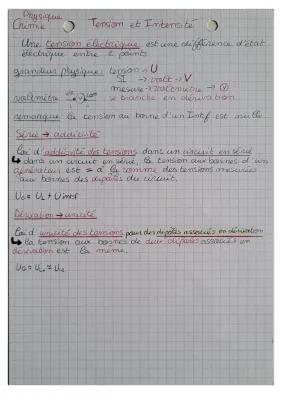 Physique
Chimie
Tension et Intensité
Une tension électrique est une différence d'état
électrique entre 2 points
grandeur physique: tension → U
SI → volt → V
mesure → voltmètre → V
voltmètre V com se branche en dérivation
remarque la tension au borne d'un Intf est nulle
Série → additivité
Loi d'additivité des tensions dans un circuit en série
↳ dans un circuit en série, la tension aux bornes d'un
générateur est = à la somme des tensions mesurées
aux bornes des dipôles du circuit.
UG = UL + Uintf
Dérivation → unicité
Loi d'unicité des tensions pour des dipôles associés en dérivation
↳ la tension aux bornes de deux dipôles associés en
dérivation est la même.